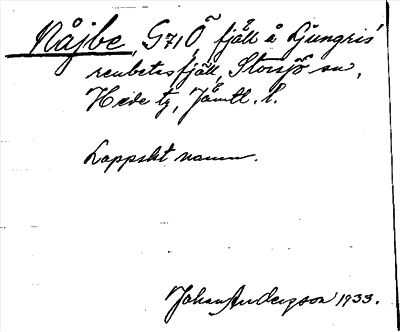 Nåjbe, G71Ö, fjäll å Ljungris'
renbetesfjäll, Storsjö sn,
Hede tg, Jämtl. l.
Lappskt namn.
Johan Anderzson 1933.